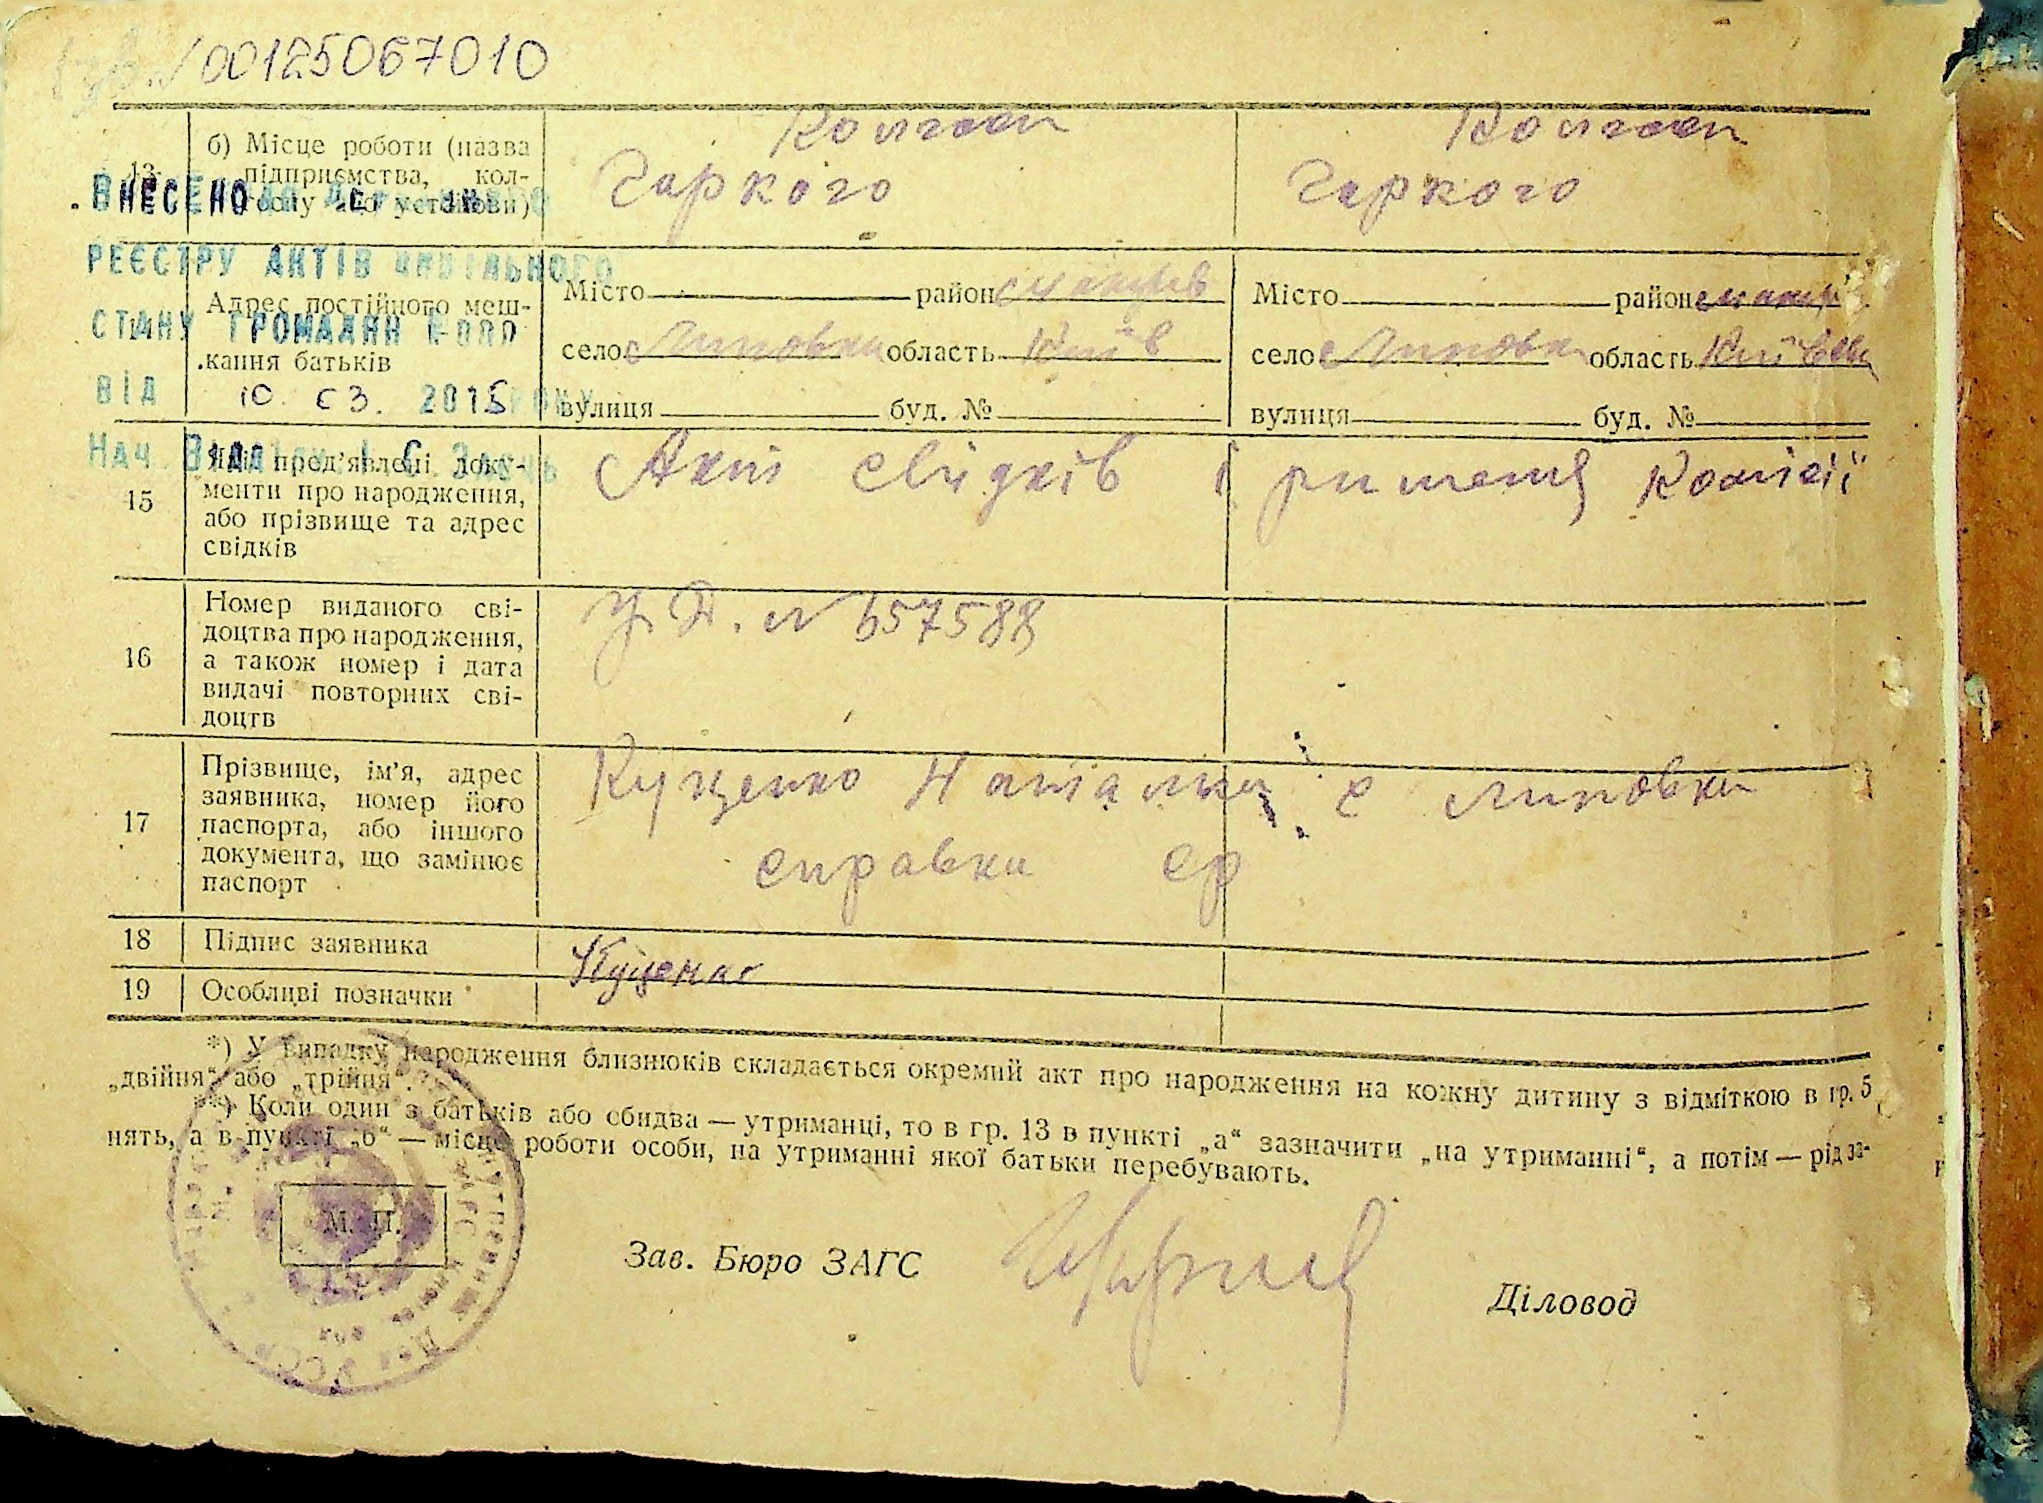 00125067010
13
б) Місце роботи (назва
підприємства, кол-
госпу або установи)
Колгосп
Горкого
Колгосп
Горкого
ВНЕСЕНО ДО ДЕРЖАВНОГО
РЕЄСТРУ АКТІВ ЦИВІЛЬНОГО
СТАНУ ГРОМАДЯН
ВІД 10. 03. 2015 РОКУ
НАЧ. ВІДДІЛУ
14
Адрес постійного меш-
кання батьків
Місто район Макарів
село с Липовка область Київ
вулиця буд. №
Місто район Макарів
село с Липовка область Київськ
вулиця буд. №
15
Які пред'явлені доку-
менти про народження,
або прізвище та адрес
свідків
Акт свідків і рішення комісії
16
Номер виданого сві-
доцтва про народження,
а також номер і дата
видачі повторних сві-
доцтв
№ 657588
17
Прізвище, ім'я, адрес
заявника, номер його
паспорта, або іншого
документа, що замінює
паспорт
Куценко Наталка с Липовка
справка ср
18
Підпис заявника
Куценко
19
Особливі позначки
*) У випадку народження близнюків складається окремий акт про народження на кожну дитину з відміткою в гр. 5
„двійня“ або „трійня“.
**) Коли один з батьків або обидва — утриманці, то в гр. 13 в пункті „а“ зазначити „на утриманні“, а потім — рід за-
нять, а в пункті „б“ — місце роботи особи, на утриманні якої батьки перебувають.
М. П.
Зав. Бюро ЗАГС
Діловод